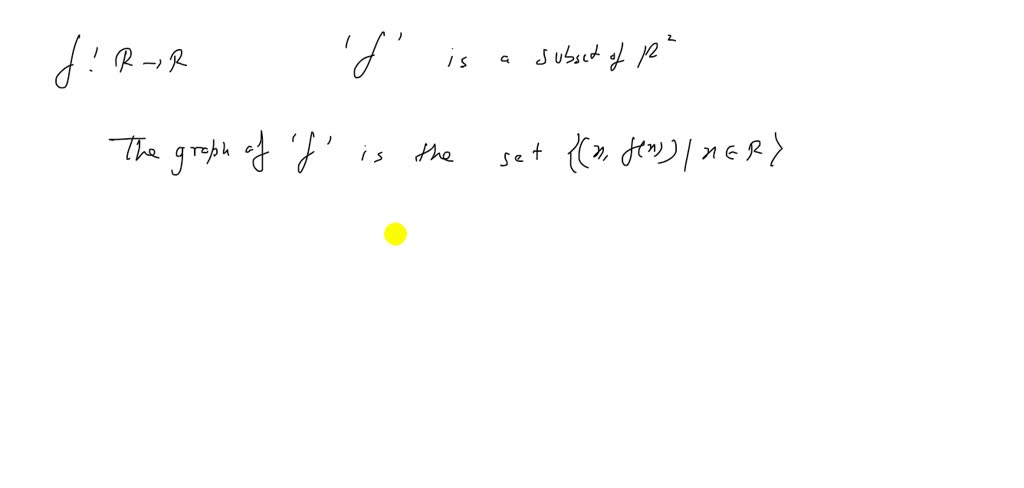 f: R → R 'f' is a subset of R²
The graph of 'f' is the set {(x, f(x)) | x ∈ R}